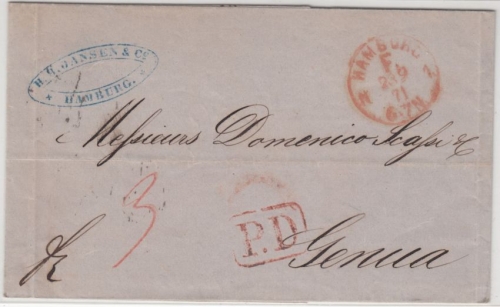 H. H. HANSEN & Co.
HAMBURG.
HAMBURG
71
Messieurs Domenico Scassi & C
3
P.D
fr
Genua